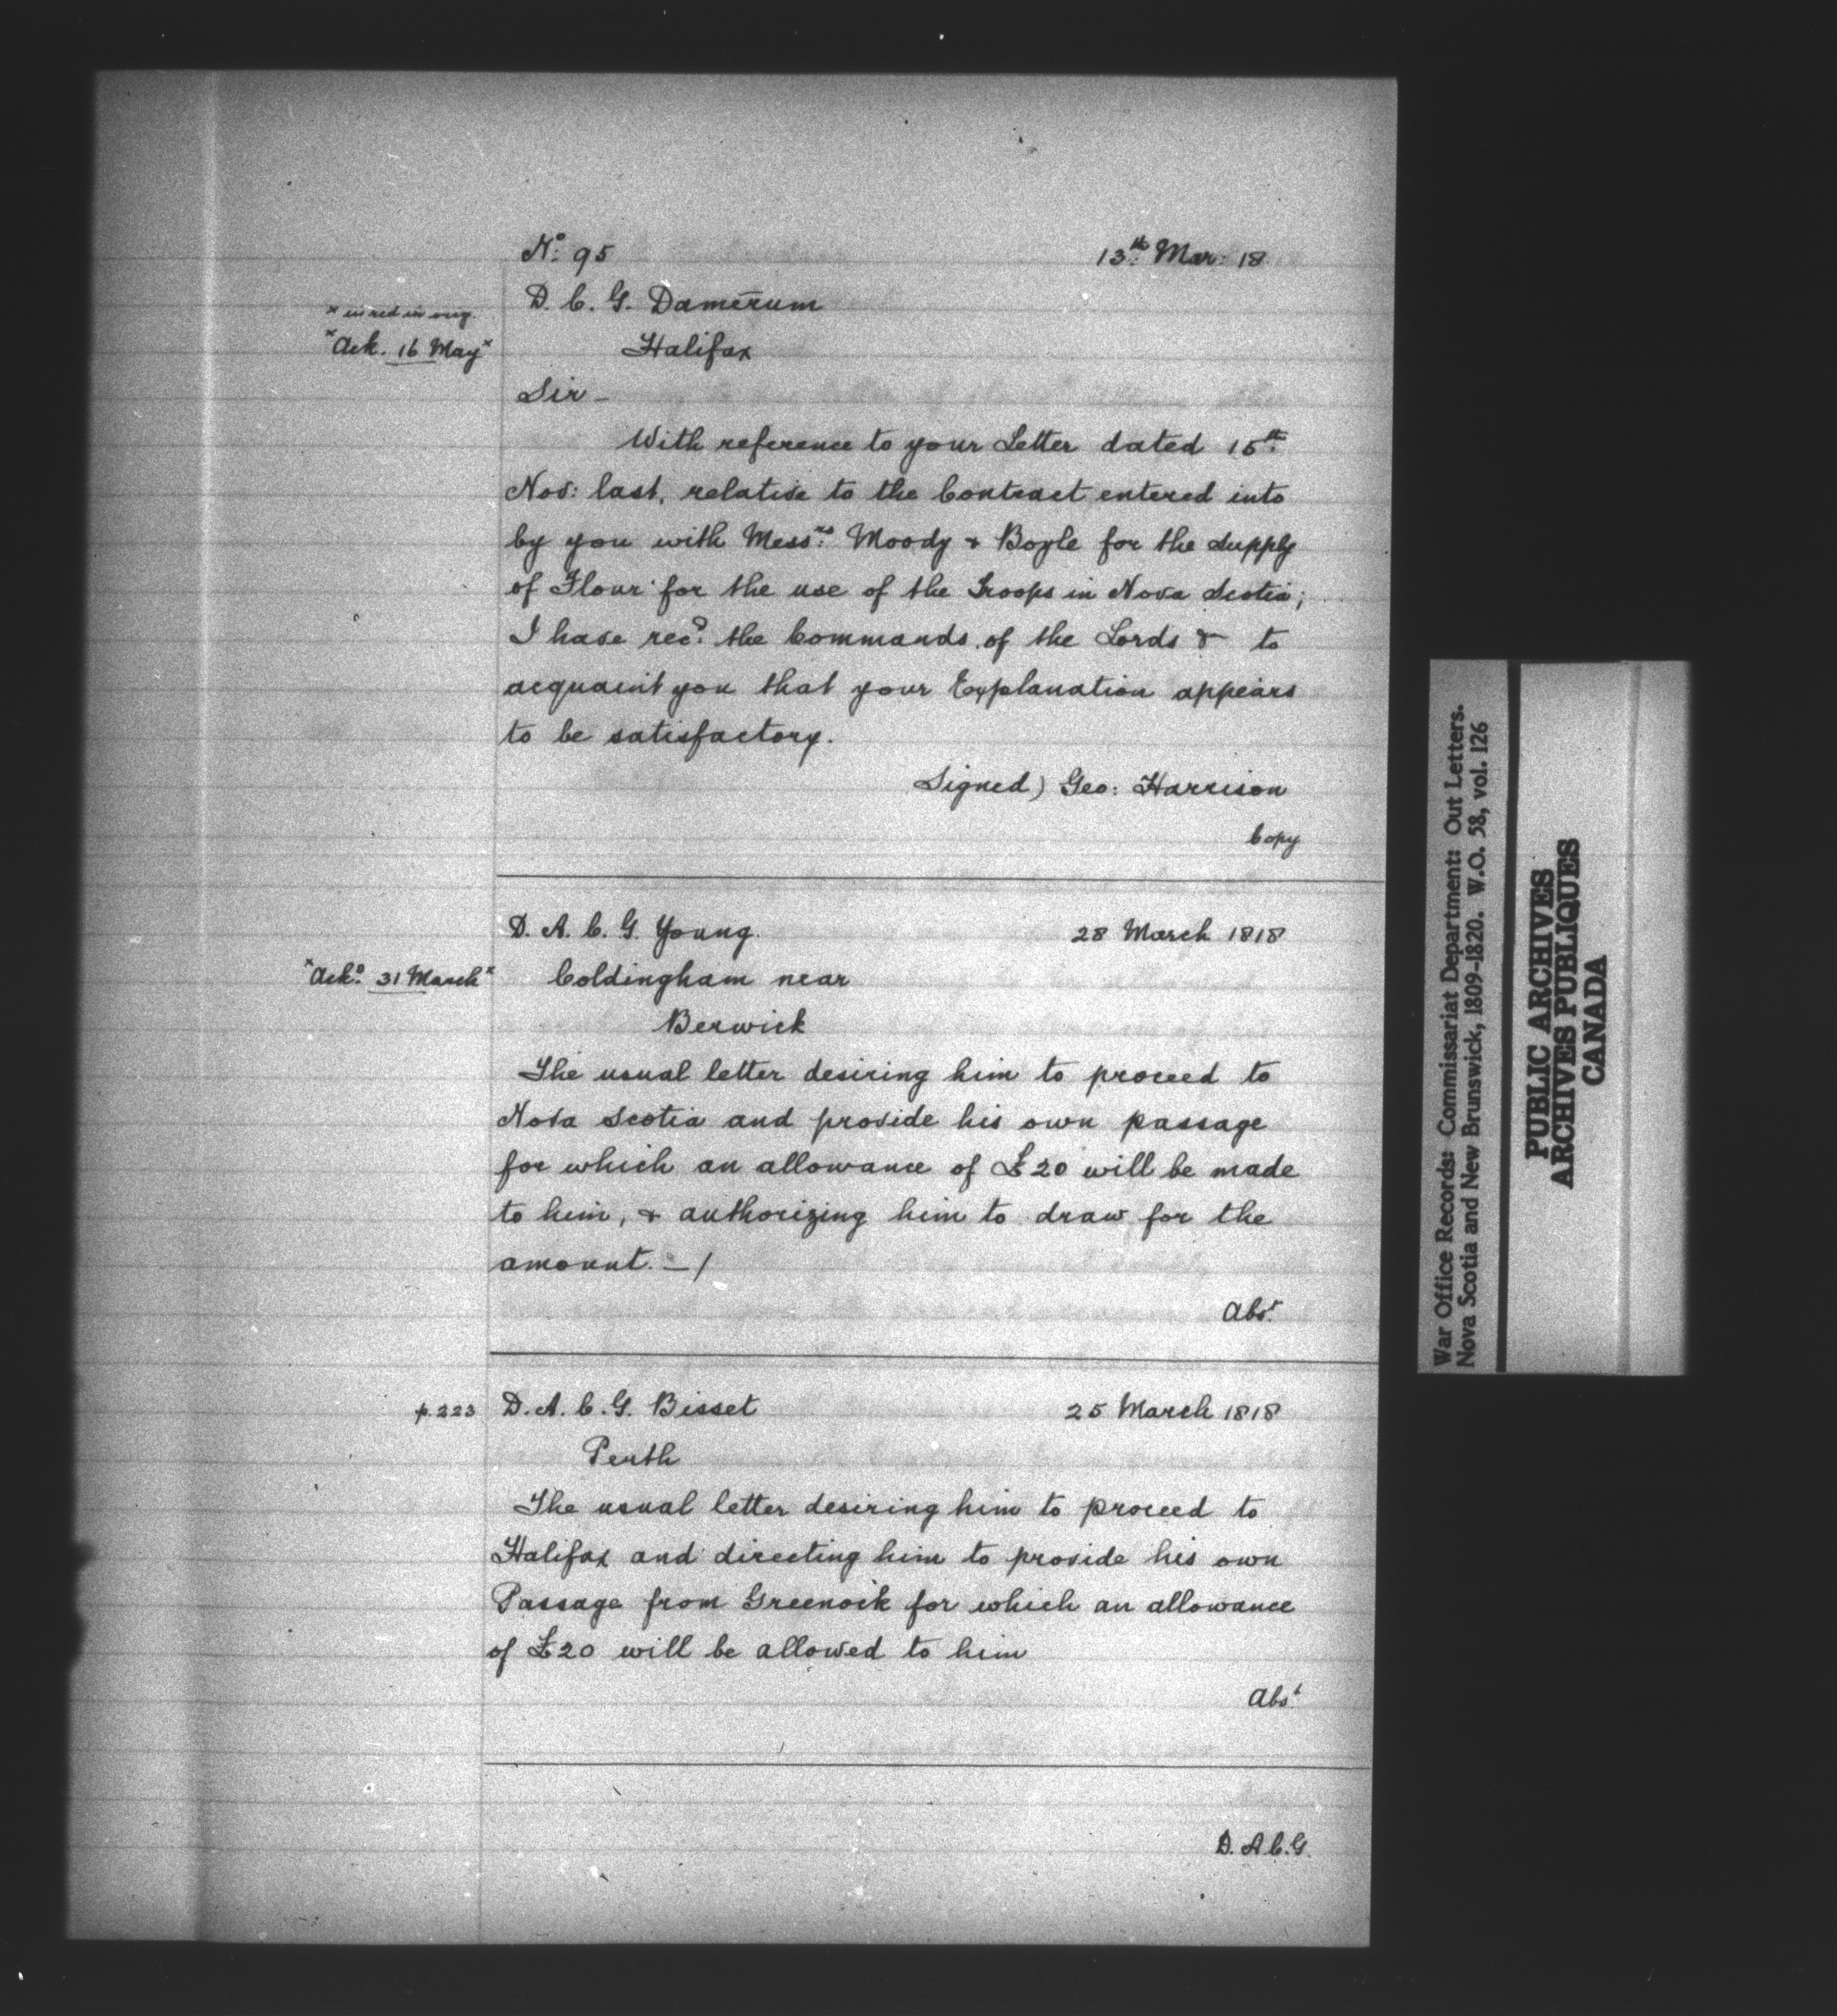 No: 95 13th: Mar: 18
D. C. G. Damerum
* in red in orig.
*Ack. 16 May*
Halifax
Sir -
With reference to your Letter dated 15th:
Nov: last, relative to the Contract entered into
by you with Messrs: Moody & Boyle for the supply
of Flour for the use of the Troops in Nova Scotia;
I have recd: the Commands of the Lords & to
acquaint you that your Explanation appears
to be satisfactory.
Signed) Geo: Harrison
Copy
D. A. C. G. Young. 28 March 1818
*Ackd: 31 March*
Coldingham near
Berwick
The usual letter desiring him to proceed to
Nova Scotia and provide his own passage
for which an allowance of £20 will be made
to him, & authorizing him to draw for the
amount. - /
Abst:
p. 223 D. A. C. G. Bisset 25 March 1818
Perth
The usual letter desiring him to proceed to
Halifax and directing him to provide his own
Passage from Greenock for which an allowance
of £20 will be allowed to him
Abst
D. A. C. G.
War Office Records: Commissariat Department: Out Letters.
Nova Scotia and New Brunswick, 1809-1820. W.O. 58, vol. 126
PUBLIC ARCHIVES
ARCHIVES PUBLIQUES
CANADA